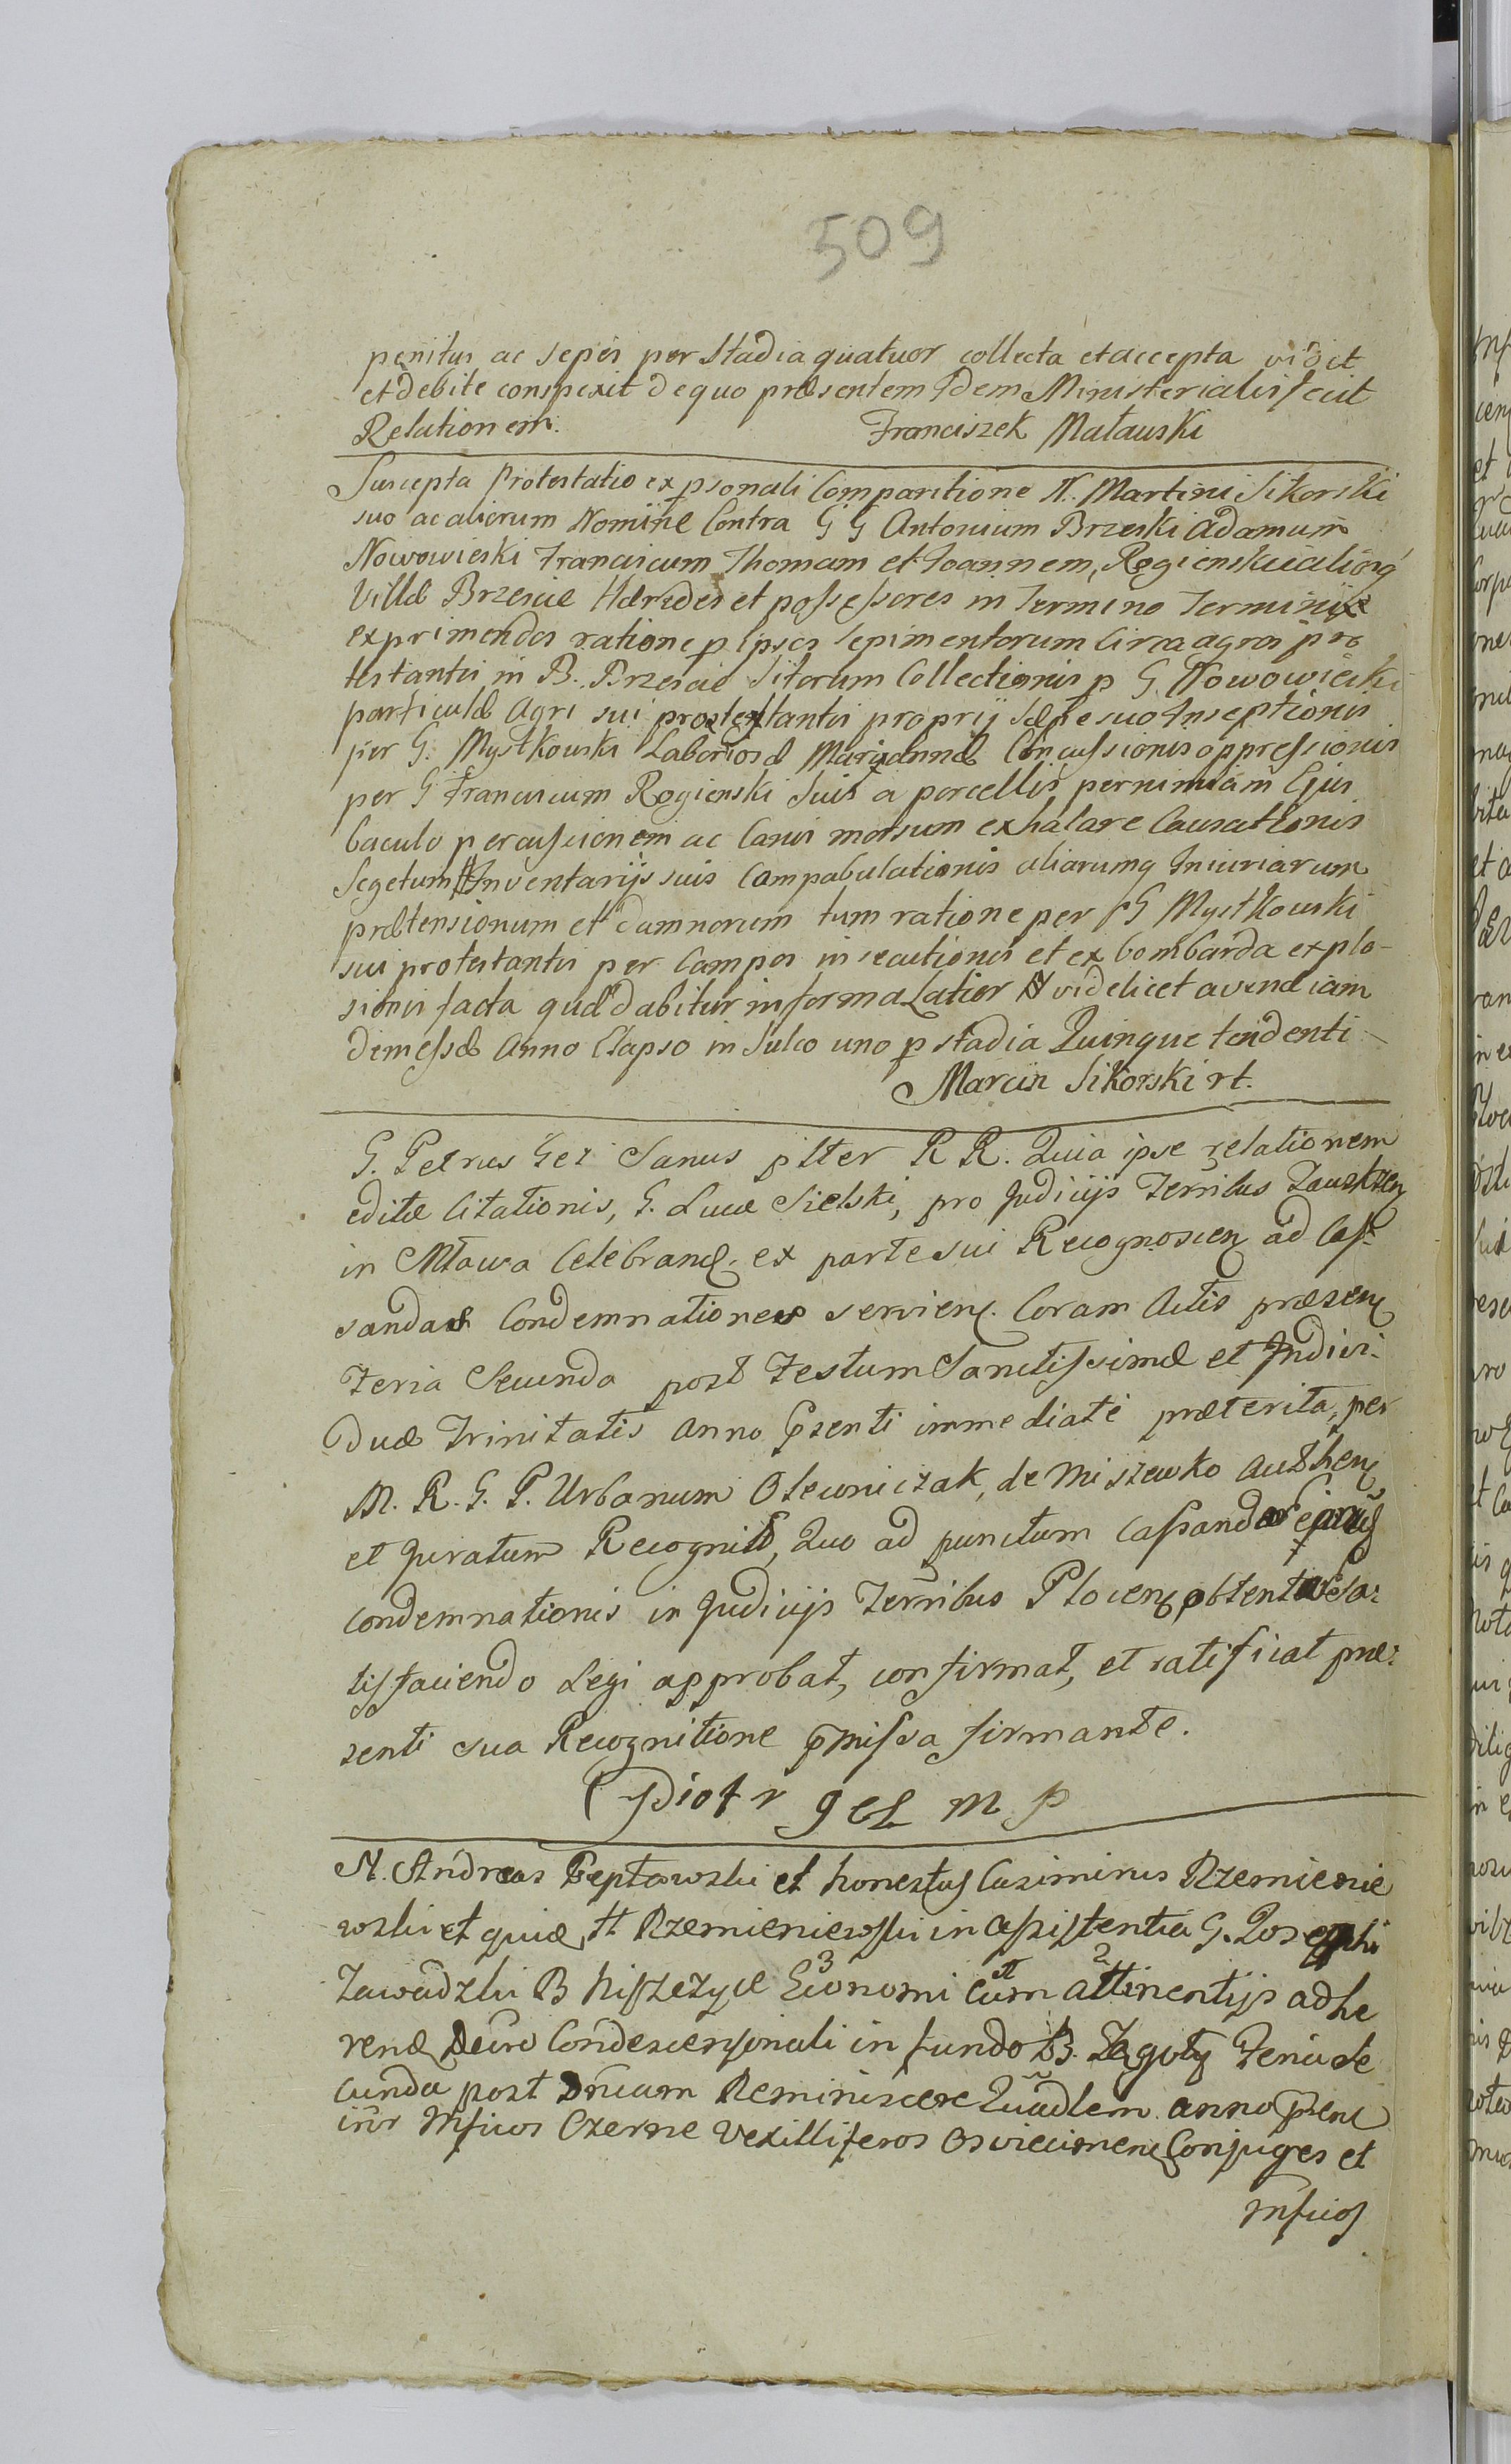 509
penitus ac sepes per Stadia quatuor collecta et accepta vidit
et debite conspexit de quo præsentem Idem Ministerialis fecit
Relationem. Franciszek Matauski
Suscepta Protestatio ex psonali Comparitione N. Martini Sikorski
suo ac aliorum Nomine Contra G G Antonium Brzeski Adamum
Nowowieski Franciscum Thomam et Joannem, Rogienskie aliosq
Villæ Brzescie Hæredes et possessores in Termino Terminis
exprimendos ratione p Ipsos sepimentorum Circa agros pro
testantis in B. Brzescie Sitorum Collectionis p G. Nowowieski
particulæ Agri sui protestantis proprij Sæpe suo Inseptionis
per G. Mystkouski Laboriosæ Mariannæ Concussionis oppressionis
per G Franciscum Rogienski Suis a porcellis per nimiam Ejus
baculo percussionem ac Canis morsum exhalare Causationis
Segetum Inventarijs suis Compabulationis aliarumq Iniuriarum
prætensionum et damnorum tum ratione per G Mystkouski
sui protestantis per Campos insecutionis et ex bombarda explo-
sionis facta quæ dabitur in forma Latior videlicet avenæ iam
demessæ Anno Elapso in Sulco uno p stadia Quinque tendenti
Marcin Sikorski rt.
G. Petrus Gez Sanus plter R R. Quia ipse relationem
editæ Citationis, G. Lucæ Sielski, pro Judicijs Terribus Zauskren
in Mława Celebrand. ex parte sui Recognoscen ad Cas-
sandas Condemnationes servien. Coram Actis præsen
Feria Secunda post Festum Sanctissimæ et Indivi-
duæ Trinitatis Anno Psenti immediate præterita, per
M. R. G. P. Urbanum Olewniczak, de Miszewko Authen
et Juratum Recognit, Quo ad punctum Cassandæ
condemnationis in Judicijs Terribus Plocen obtentæ Sa:
tisfaciendo Legi approbat, confirmat, et ratificat præ:
senti sua Recognitione pmissa firmante.
Piotr gez m p
N. Andreas Peptowski et honestus Casimirus Rzemienie
wski et quiæ tt Rzemieniewski in Assistentia G. Josephi
Zawadzki B Niszczyce Economi Cum Attinentijs adhe
ren Decro Condescensionali in fundo B. Zągoty Feria Se
cunda post Dnicam Reminiscere Quadlem anno Psen
inr Mficos Czerne Vexilliferos Osviecimen Conjuges et
Mficos